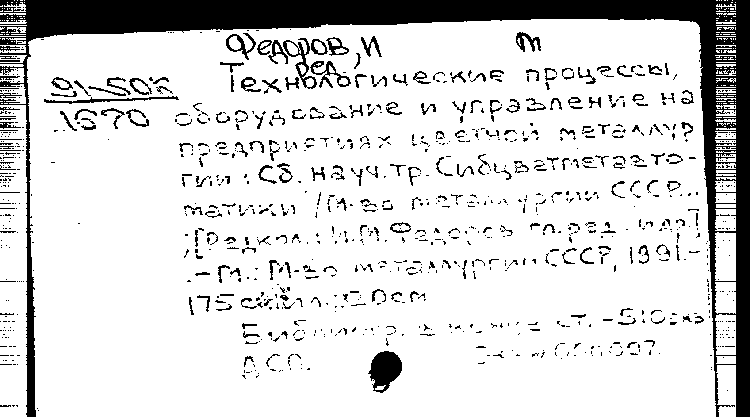 Федоров, И М
ред.
91-50к Технологические процессы,
1670 оборудование и управление на
предприятиях цветной металлур
гии : Сб. науч. тр. Сибцветметавто-
матики / М-во металлургии СССР...
; [Редкол.: И.М. Федоров гл. ред. и др.]
. - М. : М-во металлургии СССР, 1991. -
175 с. ил. ; 20 см
Библиогр. в конце ст. - 510 экз
ДСП.